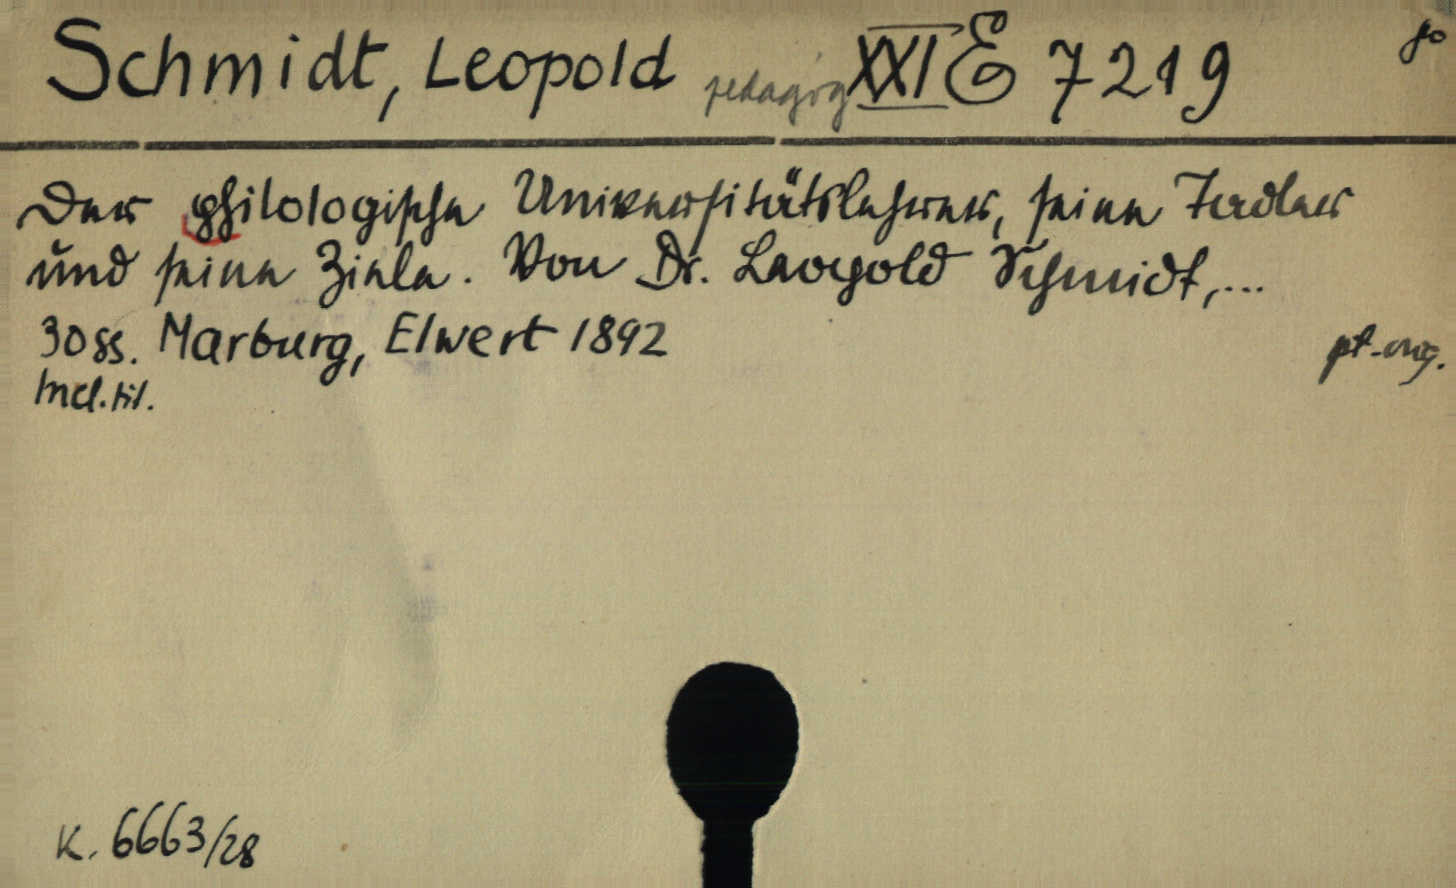 Schmidt, Leopold pedagóg XXI E 7219 8o
Der philologische Universitätslehrer, seine Tadler
und seine Ziele. Von Dr. Leopold Schmidt,...
30 ss. Marburg, Elwert 1892
Incl. tit.
K. 6663/28